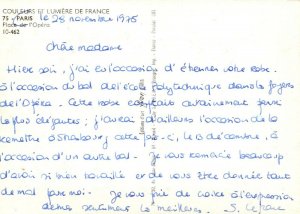 COULEURS ET LUMIÈRE DE FRANCE
75 - PARIS le 25 novembre 1975
Place de l'Opéra
IC-462
Chère madame
Hier soir, j'ai eu l'occasion d'étrenner votre robe
à l'occasion du bal de l'école polytechnique dans les foyers
de l'Opéra. Votre robe comptait certainement parmi
les plus élégantes; j'aurai d'ailleurs l'occasion de la
remettre à Strasbourg cette fois-ci, le 13 décembre, à
l'occasion d'un autre bal. Je vous remercie beaucoup
d'avoir si bien travaillé et de vous être donnée tant
de mal pour moi. Je vous prie de croire à l'expression
de mes sentiments les meilleurs.